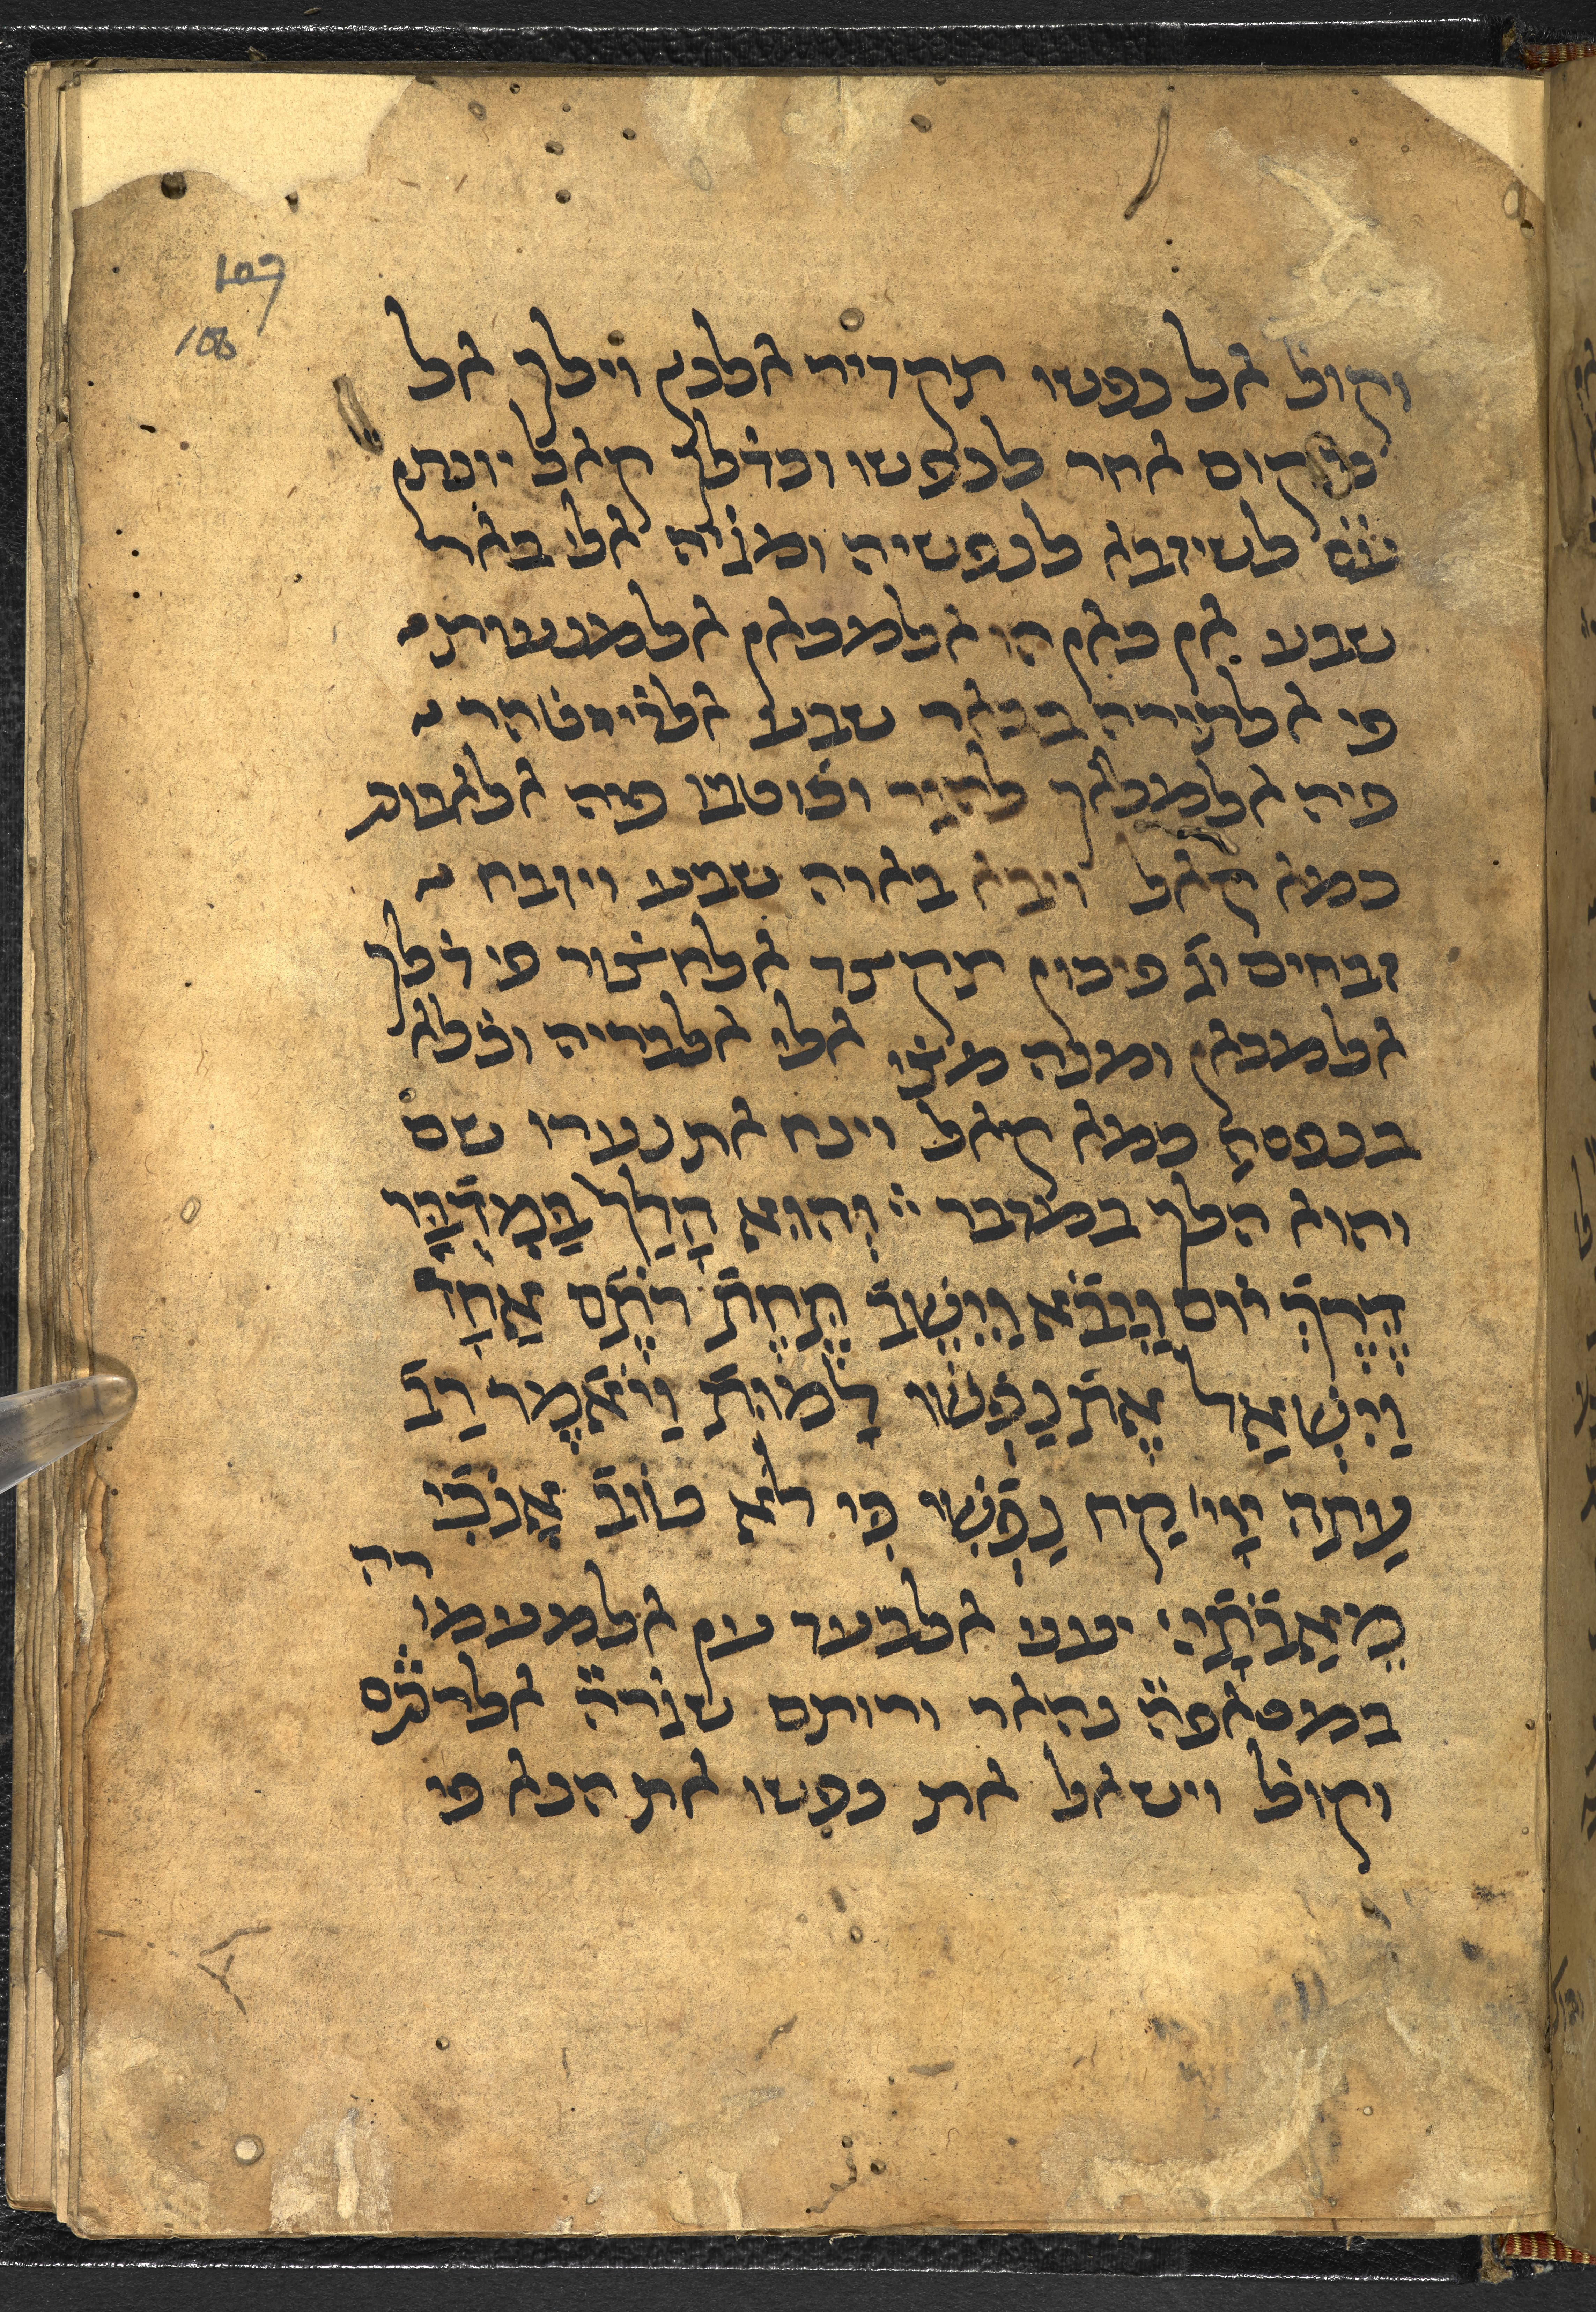 107
106
וקול אל נפשו תקדיר אלכן וילך אל
מקום אחר לנפשו וכדלך קאל יונתן
עׄסׄ לשיזבא לנפשיה ומציה אלי באר
שבע אן כאן הו אלמכאן אלמנעות
פי אלתורה בבאר שבע אלדי טהר
פיה אלמלאך להגר וכוטבו פיה אלאבות
כמא קאל ויבא בארה שבע ויזבח
זבחים וגׄ פיכון תקצד אלחצור פי דלך
אלמכאן ומנה מצׄי אלי אלבריה וכׄלא
בנפסה כמא קאל וינח את נערו שם
והוא הלך במדבר ׃ וְהוּא הָלַך בַּמִדְבָּר
דֶרֶךְ יוֹם וַיָבֹא וַיֵשֶב תַחַת רֹתֶם אֶחָד
וַיִשְׁאַל אֶת נַפְשוֹ לָמוּת וַיֹאמֶר רַב
עַתָה יְיָ קַח נַפְשִי כִי לֹא טוֹב אָנֹכִי
מֵאֲבֹתָי׃ יעני אלבעד ען אלמעמורה
במסאפהׄ נהאר ורותם שגׄרהׄ אלרתׄם
וקול וישאל את נפשו את הנא פי